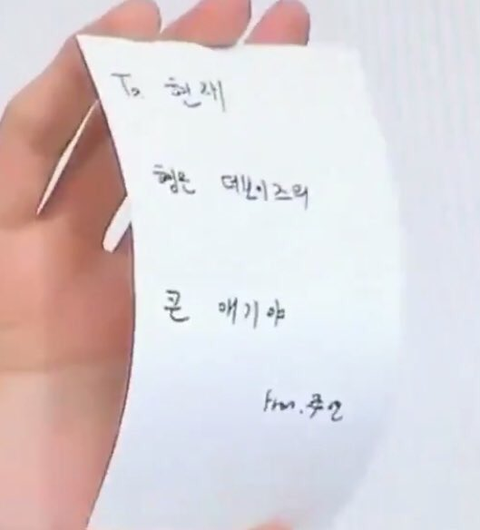 To 현재
형은 더보이즈의
큰 애기야
frm. 주연